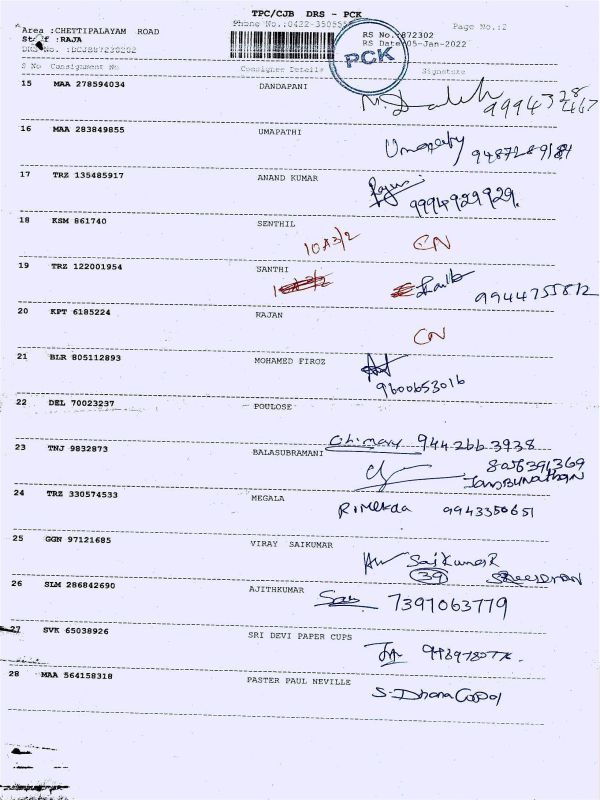 TPC/CJB DRS - PCK
Phone No.:0422-350555 Page No.:2
Area :CHETTIPALAYAM ROAD
Staff :RAJA
RS No.:872302
RS Date:05-Jan-2022
DRS No. :DCJB87230202
PCK
S No Consignment No Consignee Details Signature
15 MAA 278594034 DANDAPANI
16 MAA 283849855 UMAPATHI Umapathy
17 TRZ 135485917 ANAND KUMAR 9994929929
18 KSM 861740 SENTHIL 10A3/2 CN
19 TRZ 122001954 SANTHI 9944755872
20 KPT 6185224 RAJAN CN
21 BLR 805112893 MOHAMED FIROZ
9600653016
22 DEL 70023237 POULOSE
Chimary 9442663938
23 TNJ 9832873 BALASUBRAMANI
8056391369
24 TRZ 330574533 MEGALA 9943350651
25 GGN 97121685 VIRAY SAIKUMAR
SaiKumar R
39
26 SLM 286842690 AJITHKUMAR 7397063779
27 SVK 65038926 SRI DEVI PAPER CUPS
28 MAA 564158318 PASTER PAUL NEVILLE S. DhanaGopal